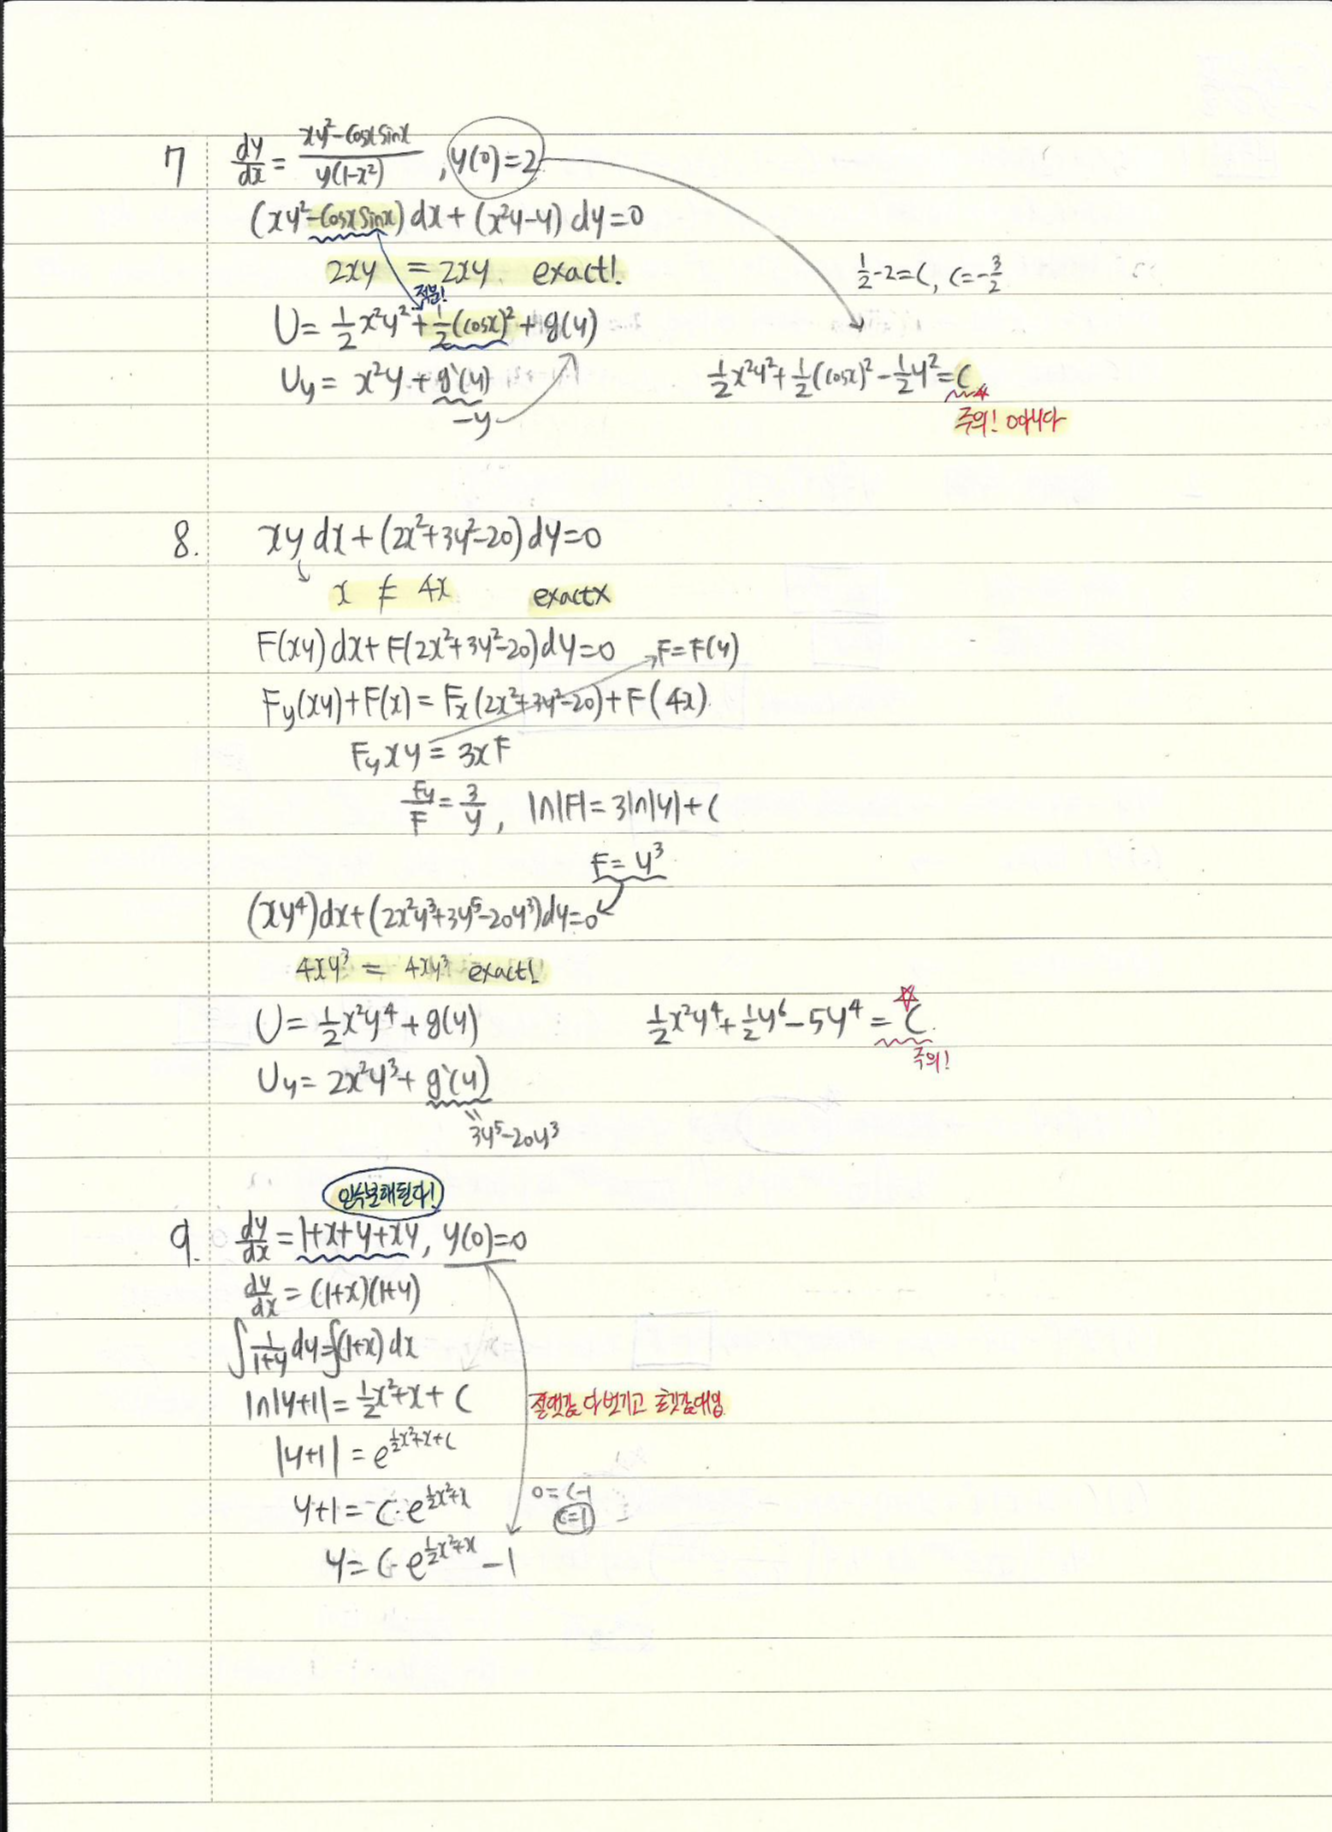 7 dy/dx = (xy² - cosx sinx)/(y(1-x²)), y(0)=2
(xy² - cosx sinx) dx + (x²y - y) dy = 0
2xy = 2xy. exact!
적분!
U = 1/2 x²y² + 1/2 (cosx)² + g(y)
Uy = x²y + g'(y)
-y
1/2 - 2 = C, C = -3/2
1/2 x²y² + 1/2 (cosx)² - 1/2 y² = C
주의! 0아니다
8. xy dx + (2x² + 3y² - 20) dy = 0
x ≠ 4x exact x
F(xy) dx + F(2x² + 3y² - 20) dy = 0 F = F(y)
Fy(xy) + F(x) = Fx(2x² + 3y² - 20) + F(4x)
Fy xy = 3xF
Fy/F = 3/y, ln|F| = 3ln|y| + C
F = y³
(xy⁴) dx + (2x²y³ + 3y⁵ - 20y³) dy = 0
4xy³ = 4xy³ exact!
U = 1/2 x²y⁴ + g(y)
Uy = 2x²y³ + g'(y)
3y⁵ - 20y³
1/2 x²y⁴ + 1/2 y⁶ - 5y⁴ = C
주의!
인수분해된다!
9. dy/dx = 1+x+y+xy, y(0)=0
dy/dx = (1+x)(1+y)
∫ 1/(1+y) dy = ∫(1+x) dx
ln|y+1| = 1/2 x² + x + C
절댓값 다 벗기고 초깃값대입
|y+1| = e^(1/2 x² + x + C)
y+1 = C·e^(1/2 x² + x)
0 = C-1
C=1
y = C·e^(1/2 x² + x) - 1